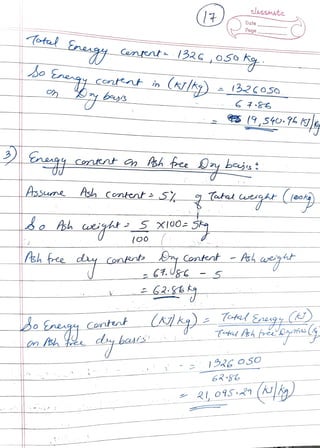 17
classmate
Date
Page
Total Energy content = 1326,050 kg.
So Energy content in (KJ/kg) = 1326050
on Dry basis 67.86
= 19,540.96 KJ/kg
3) Energy content on Ash free Dry basis:
Assume Ash content = 5% of Total weight (100kg)
So Ash weight = 5 x100 = 5kg
100
Ash free dry content = Dry content - Ash weight
= 67.86 - 5
= 62.86 kg
So Energy content (KJ/kg) = Total Energy (KJ)
on Ash free dry basis Total Ash free Dry (kg)
= 1326050
62.86
= 21,095.29 (KJ/kg)